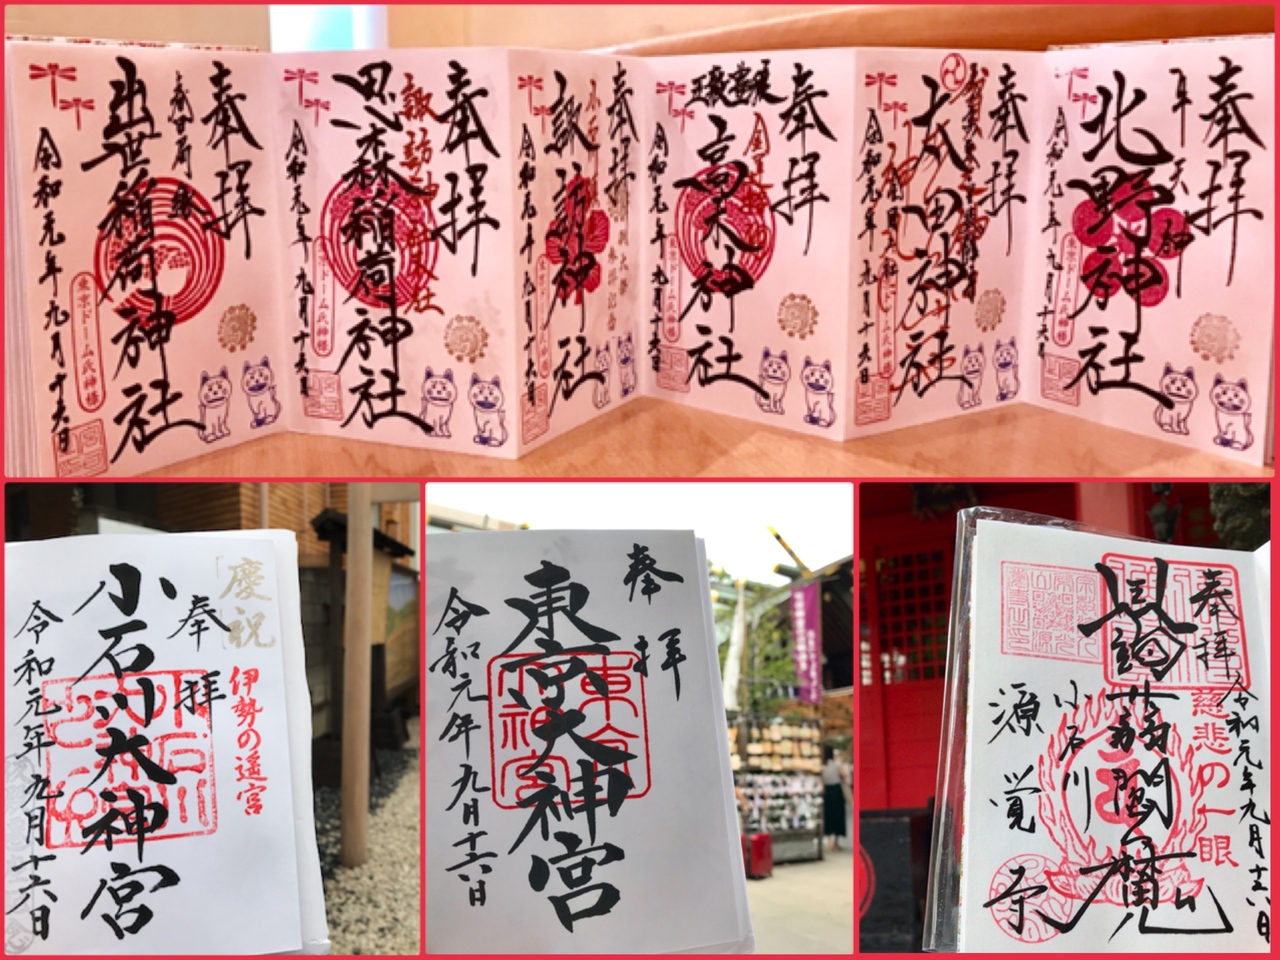 奉拝
出世稲荷神社
令和元年九月十六日
東京ドーム氏神様
奉拝
諏訪神社末社
思森稲荷神社
令和元年九月十六日
奉拝
諏訪神社
令和元年九月十六日
奉拝
高木神社
令和元年九月十六日
奉拝
太田神社
令和元年九月十六日
奉拝
牛天神
北野神社
令和元年九月十六日
東京ドーム氏神様
慶祝
伊勢の遥宮
奉拝
小石川大神宮
令和元年九月十六日
奉拝
東京大神宮
令和元年九月十六日
奉拝
令和元年九月十六日
慈悲の一眼
蒟蒻閻魔
小石川
源覚寺